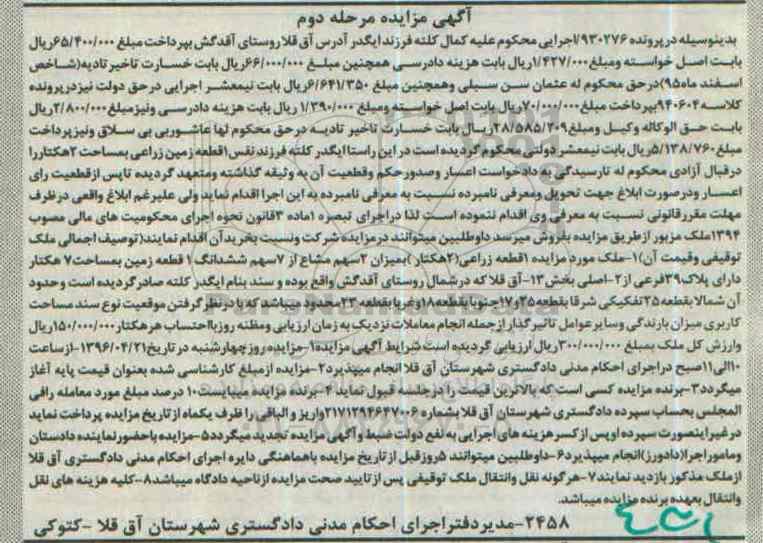 آگهی مزایده مرحله دوم
بدینوسیله در پرونده ۹۳۰۲۷۶/اجرایی محکوم علیه کمال کلته فرزند ایگدر آدرس آق قلا روستای آقدگش بپرداخت مبلغ ۶۵/۴۰۰/۰۰۰ریال
بابت اصل خواسته ومبلغ ۱/۴۲۷/۰۰۰ریال بابت هزینه دادرسی همچنین مبلغ ۶۶/۰۰۰/۰۰۰ریال بابت خسارت تاخیر تادیه(شاخص
اسفند ماه۹۵)در حق محکوم له عثمان سن سبلی وهمچنین مبلغ ۶/۶۴۱/۳۵۰ ریال بابت نیمعشر اجرایی در حق دولت نیز در پرونده
کلاسه ۹۴۰۶۰۴بپرداخت مبلغ ۷۰/۰۰۰/۰۰۰ریال بابت اصل خواسته ومبلغ ۱/۳۹۰/۰۰۰ ریال بابت هزینه دادرسی ونیزمبلغ ۲/۸۰۰/۰۰۰ریال
بابت حق الوکاله وکیل ومبلغ۲۸/۵۸۵/۲۰۹ریال بابت خسارت تاخیر تادیه درحق محکوم لها عاشوربی بی سلاق ونیزپرداخت
مبلغ۵/۱۳۸/۷۶۰ریال بابت نیمعشر دولتی محکوم گردیده است در این راستا ایگدر کلته فرزند نفس ۱قطعه زمین زراعی بمساحت ۲هکتاررا
درقبال آزادی محکوم له تارسیدگی به دادخواست اعسار وصدورحکم وقطعیت آن به وثیقه گذاشته ومتعهد گردیده تاپس ازقطعیت رای
اعسار ودرصورت ابلاغ جهت تحویل ومعرفی نامبرده نسبت به معرفی نامبرده به این اجرا اقدام نماید ولی علیرغم ابلاغ واقعی درظرف
مهلت مقررقانونی نسبت به معرفی وی اقدام ننموده است لذا دراجرای تبصره ۱ماده ۳قانون نحوه اجرای محکومیت های مالی مصوب
۱۳۹۴ملک مزبور ازطریق مزایده بفروش میرسد داوطلبین میتوانند درمزایده شرکت ونسبت بخرید آن اقدام نمایند(توصیف اجمالی ملک
توقیفی وقیمت آن)۱-ملک مورد مزایده ۱قطعه زراعی(۲هکتار)بمیزان ۲سهم مشاع از ۷سهم ششدانگ ۱ قطعه زمین بمساحت۷ هکتار
دارای پلاک۳۹فرعی از۲-اصلی بخش۱۳-آق قلا که درشمال روستای آقدگش واقع بوده و سند بنام ایگدر کلته صادرگردیده است وحدود
آن شمالا بقطعه۲۵تفکیکی شرقا بقطعه۲۵و۱۷جنوبا بقطعه۱۸وغربا بقطعه ۲۳محدود میباشد که بادرنظر گرفتن موقعیت نوع سند مساحت
کاربری میزان بارندگی وسایرعوامل تاثیرگذارازجمله انجام معاملات نزدیک به زمان ارزیابی ومظنه روزبااحتساب هرهکتار۱۵۰/۰۰۰/۰۰۰ریال
وارزش کل ملک بمبلغ ۳۰۰/۰۰۰/۰۰۰ریال ارزیابی گردیده است شرایط آگهی مزایده۱-مزایده روزچهارشنبه در تاریخ۱۳۹۶/۰۴/۲۱-ازساعت
۱۰الی۱۱صبح دراجرای احکام مدنی دادگستری شهرستان آق قلاانجام میپذیرد۲-مزایده ازمبلغ کارشناسی شده بعنوان قیمت پایه آغاز
میگردد۳-برنده مزایده کسی است که بالاترین قیمت رادرجلسه قبول نماید ۴-برنده مزایده میبایست۱۰ درصد مبلغ مورد معامله رافی
المجلس بحساب سپرده دادگستری شهرستان آق قلا بشماره ۲۱۷۱۲۹۴۶۴۷۰۰۶واریز و الباقی را ظرف یکماه ازتاریخ مزایده پرداخت نماید
درغیراینصورت سپرده اوپس ازکسرهزینه های اجرایی به نفع دولت ضبط وآگهی مزایده تجدید میگردد۵-مزایده باحضورنماینده دادستان
وماموراجرا(دادورز)انجام میپذیرد۶-داوطلبین میتوانند ۵روزقبل ازتاریخ مزایده باهماهنگی دایره اجرای احکام مدنی دادگستری آق قلا
ازملک مذکوربازدید نمایند۷-هرگونه نقل وانتقال ملک توقیفی پس ازتایید صحت مزایده ازناحیه دادگاه میباشد۸-کلیه هزینه های نقل
وانتقال بعهده برنده مزایده میباشد.
۲۴۵۸-مدیردفتراجرای احکام مدنی دادگستری شهرستان آق قلا -کتوکی